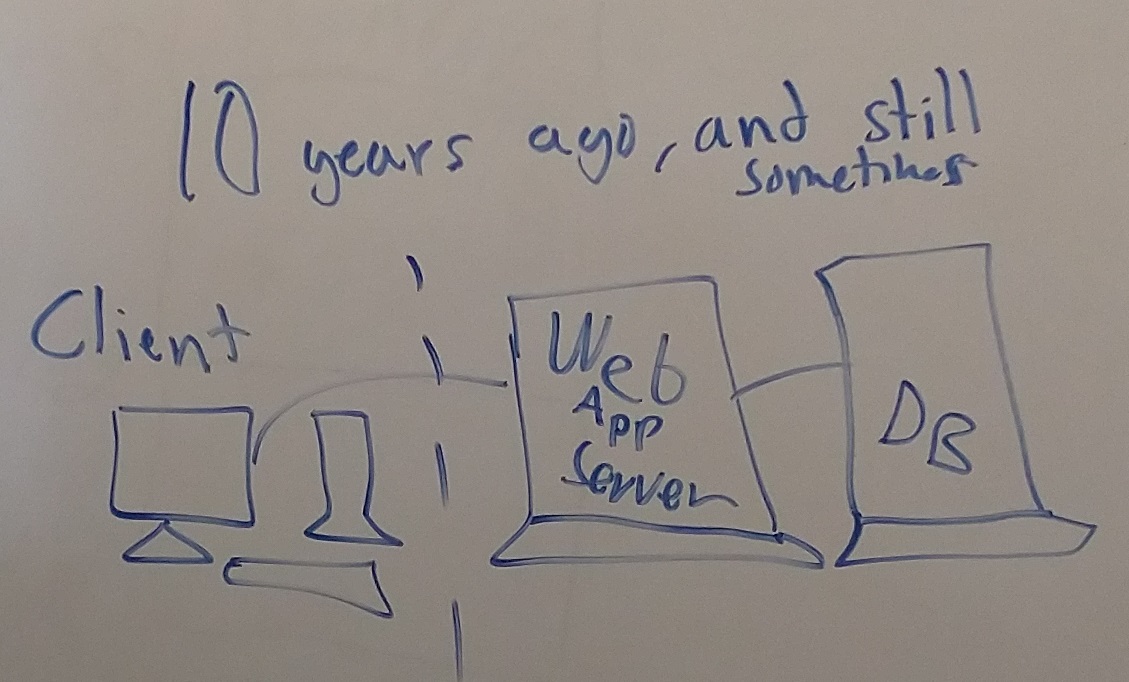 10 years ago, and still
sometimes
Client
Web
App
Server
DB